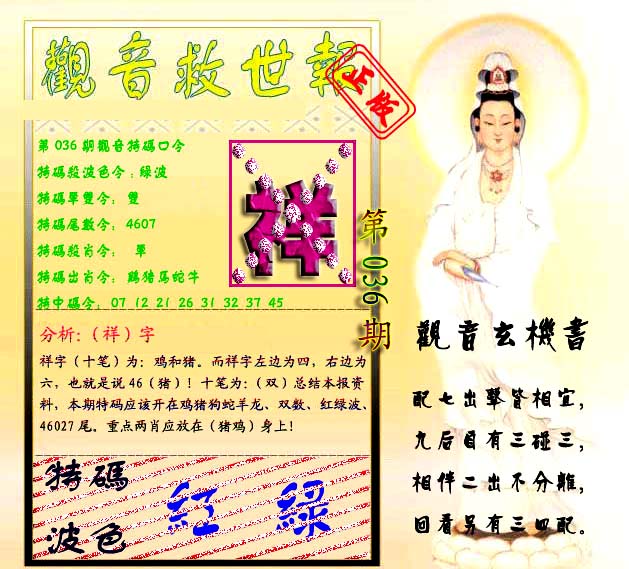 觀音救世報
正版
第036期觀音特碼口令
特碼殺波色令：綠波
特碼單雙令： 雙
特碼尾數令： 4607
特碼殺肖令： 單
特碼出肖令： 鷄猪馬蛇牛
特中碼令： 07 12 21 26 31 32 37 45
祥
第036期
分析：（祥）字
祥字（十笔）为：鸡和猪。而祥字左边为四，右边为
六，也就是说46（猪）！十笔为：（双）总结本报资
料，本期特码应该开在鸡猪狗蛇羊龙、双数、红绿波、
46027尾。重点两肖应放在（猪鸡）身上！
特碼
波色
紅 綠
觀音玄機書
配七出擊皆相宜，
九后目有三碰三，
相伴二出不分離，
回看另有三四配。